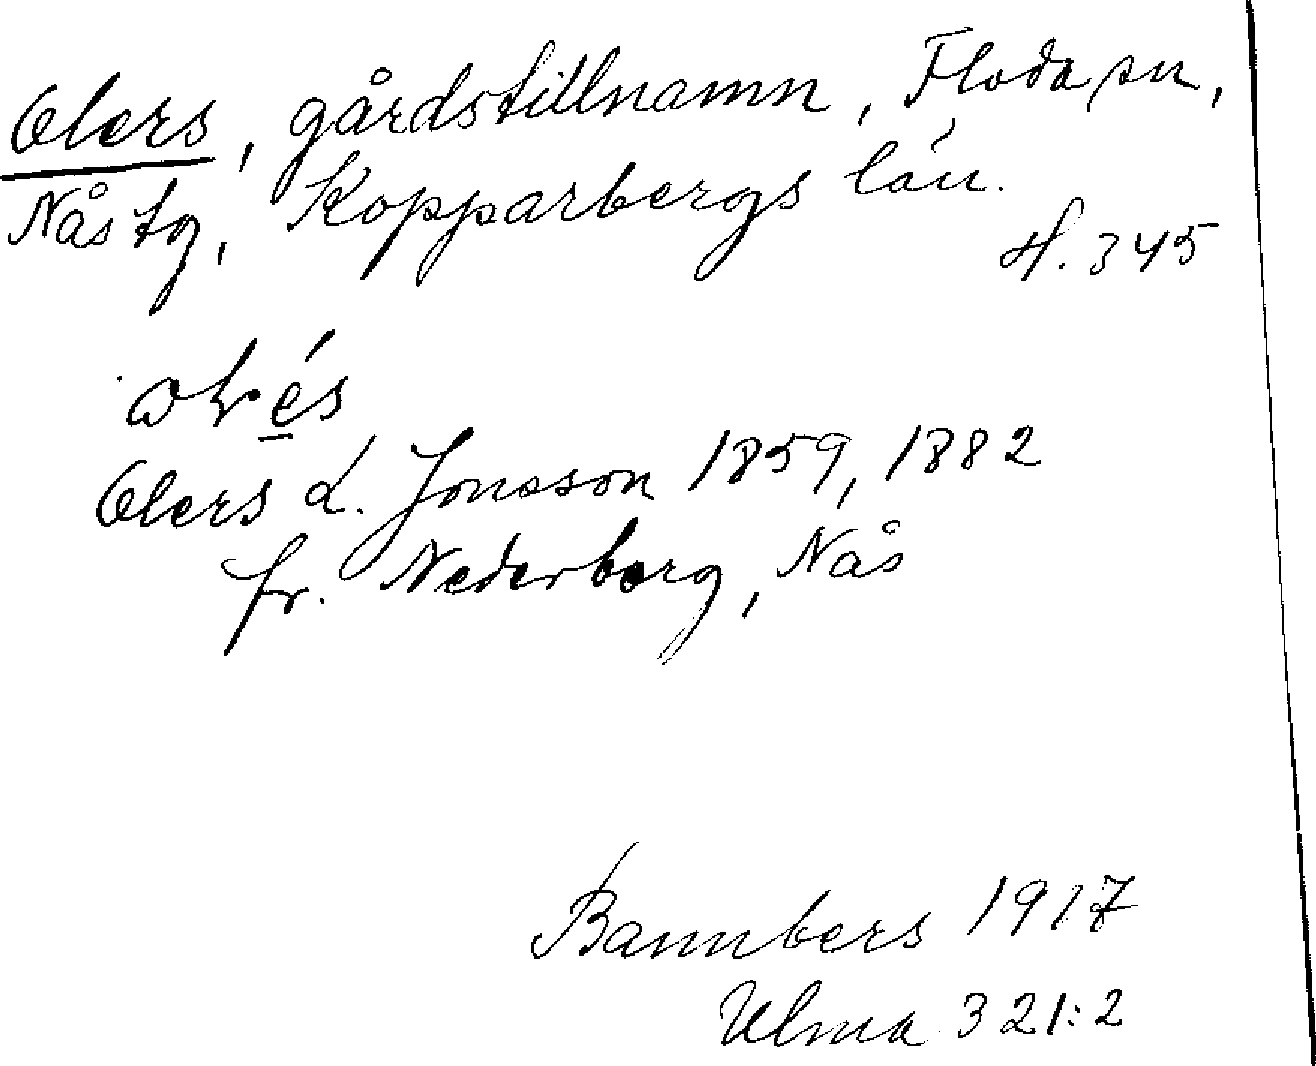 Olers, gårdstillnamn, Floda sn,
Nås tg, Kopparbergs län.
H. 345
Olers L. Jonsson 1859, 1882
fr. Nederborg, Nås
Bannbers 1917
Ulma 321:2